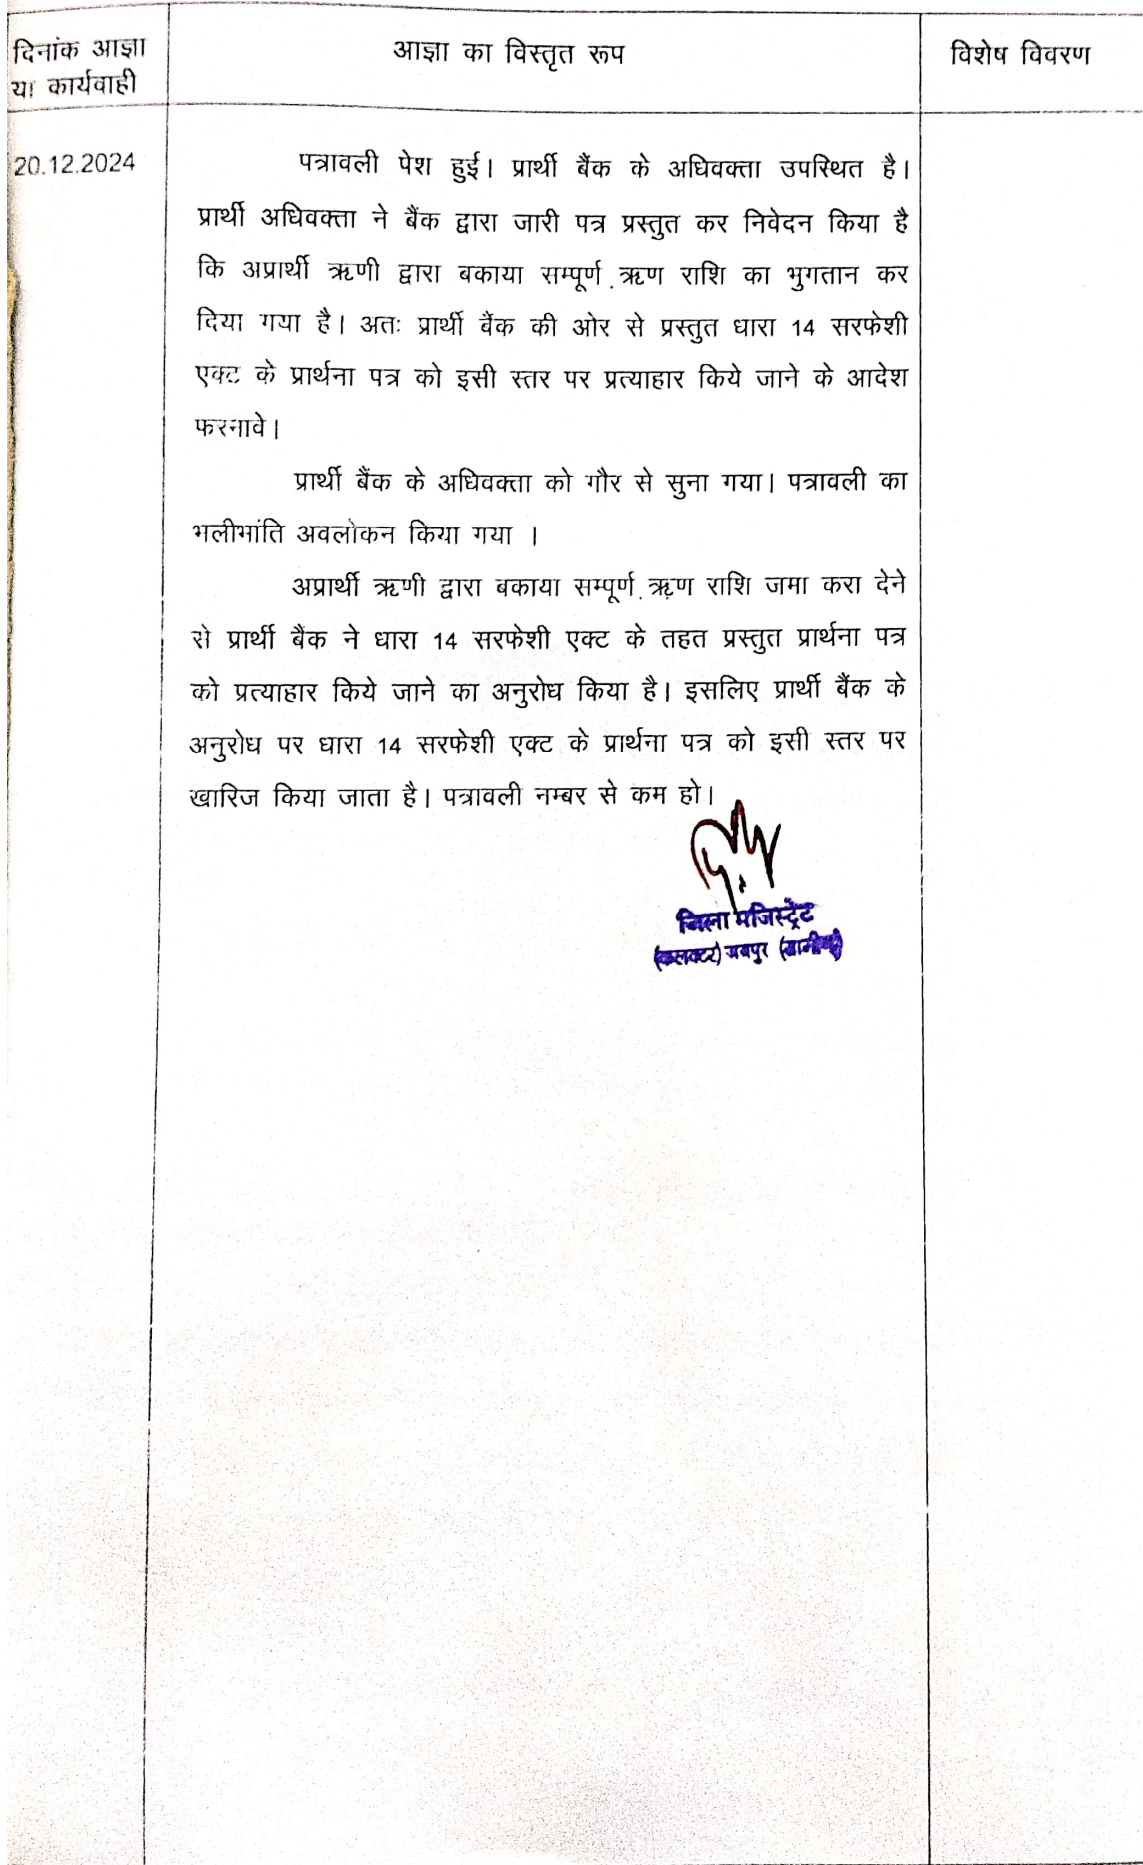 दिनांक आज्ञा
या कार्यवाही
आज्ञा का विस्तृत रूप
विशेष विवरण
20.12.2024
पत्रावली पेश हुई। प्रार्थी बैंक के अधिवक्ता उपस्थित है।
प्रार्थी अधिवक्ता ने बैंक द्वारा जारी पत्र प्रस्तुत कर निवेदन किया है
कि अप्रार्थी ऋणी द्वारा बकाया सम्पूर्ण ऋण राशि का भुगतान कर
दिया गया है। अतः प्रार्थी बैंक की ओर से प्रस्तुत धारा 14 सरफेशी
एक्ट के प्रार्थना पत्र को इसी स्तर पर प्रत्याहार किये जाने के आदेश
फरनावे।
प्रार्थी बैंक के अधिवक्ता को गौर से सुना गया। पत्रावली का
भलीभांति अवलोकन किया गया ।
अप्रार्थी ऋणी द्वारा बकाया सम्पूर्ण ऋण राशि जमा करा देने
से प्रार्थी बैंक ने धारा 14 सरफेशी एक्ट के तहत प्रस्तुत प्रार्थना पत्र
को प्रत्याहार किये जाने का अनुरोध किया है। इसलिए प्रार्थी बैंक के
अनुरोध पर धारा 14 सरफेशी एक्ट के प्रार्थना पत्र को इसी स्तर पर
खारिज किया जाता है। पत्रावली नम्बर से कम हो।
जिला मजिस्ट्रेट
(कलक्टर) जयपुर (ग्रामीण)